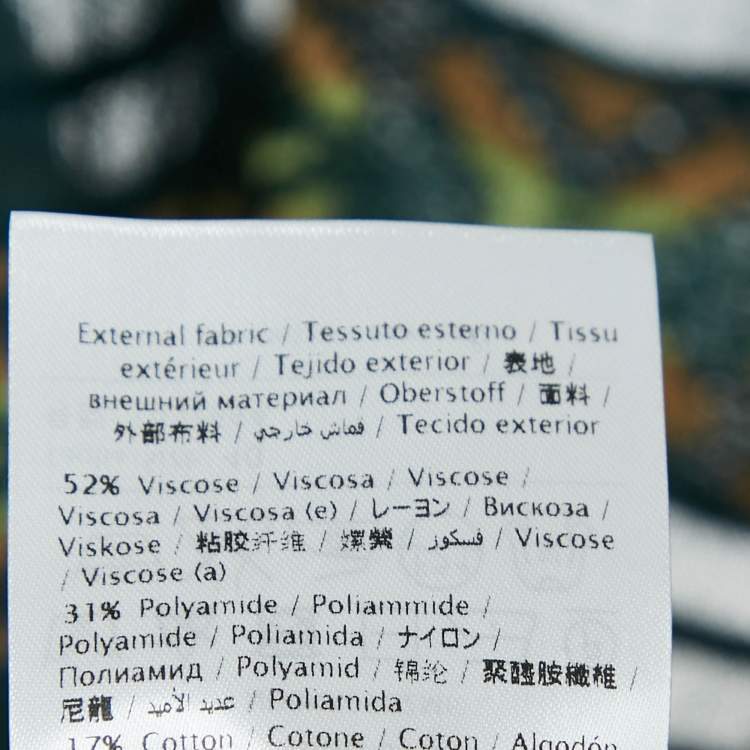 External fabric / Tessuto esterno / Tissu
extérieur / Tejido exterior / 表地 /
внешний материал / Oberstoff / 面料 /
外部布料 / قماش خارجي / Tecido exterior
52% Viscose / Viscosa / Viscose /
Viscosa / Viscosa (e) / レーヨン / Вискоза /
Viskose / 粘胶纤维 / 嫘縈 / فسكوز / Viscose
/ Viscose (a)
31% Polyamide / Poliammide /
Polyamide / Poliamida / ナイロン /
Полиамид / Polyamid / 锦纶 / 聚醯胺纖維 /
尼龍 / عديد الأميد / Poliamida
17% Cotton / Cotone / Coton / Algodón